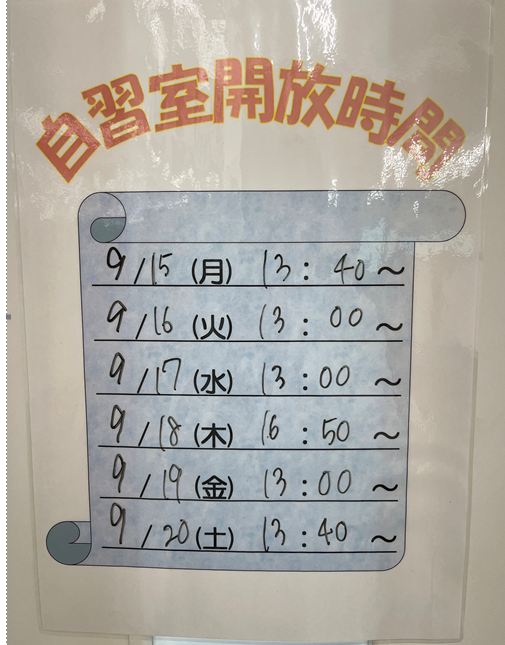 自習室開放時間
9/15 (月) 13:40~
9/16 (火) 13:00~
9/17 (水) 13:00~
9/18 (木) 16:50~
9/19 (金) 13:00~
9/20 (土) 13:40~